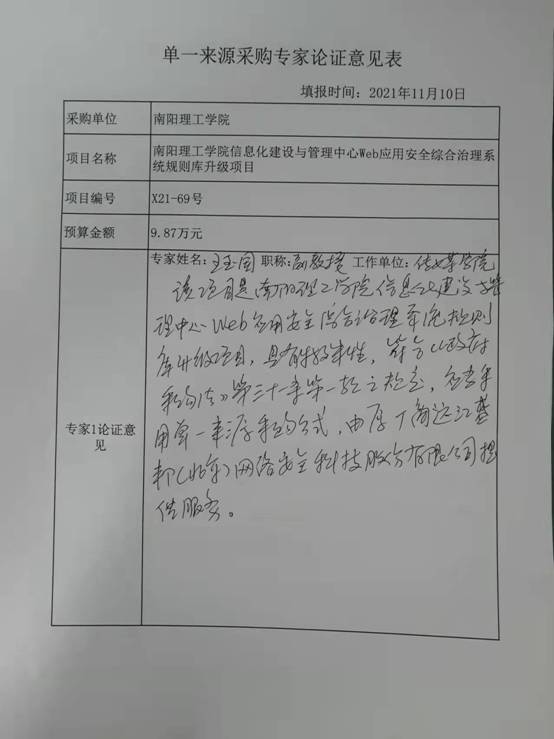 单一来源采购专家论证意见表
填报时间：2021年11月10日
采购单位
南阳理工学院
项目名称
南阳理工学院信息化建设与管理中心Web应用安全综合治理系
统规则库升级项目
项目编号
X21-69号
预算金额
9.87万元
专家1论证意
见
专家姓名：王玉国 职称：副教授 工作单位：传媒学院
该项目是南阳理工学院信息化建设与管
理中心Web应用安全综合治理系统规则
库升级项目，具有特殊性，符合《政府
采购法》第三十一条第一款之规定，应当采
用单一来源采购方式，由原厂商远江盛
邦（北京）网络安全科技股份有限公司提
供服务。